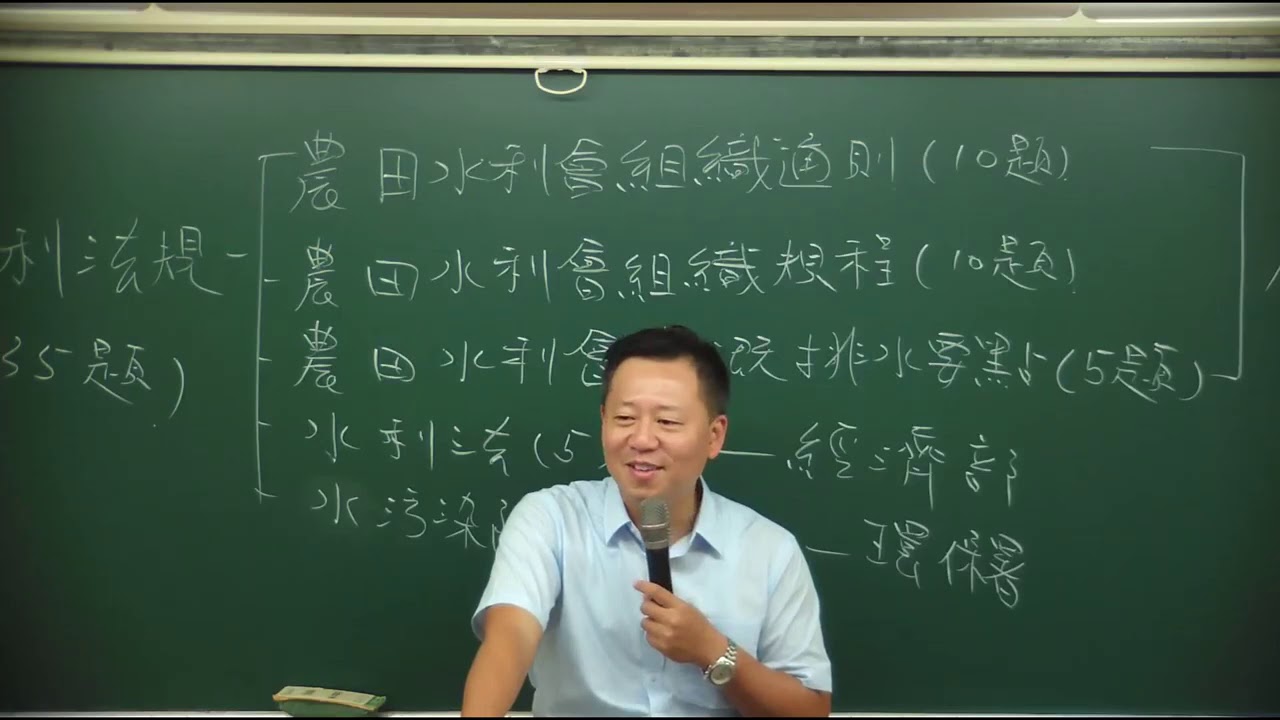 利法規
35題)
農田水利會組織通則(10題)
農田水利會組織規程(10題)
農田水利會 排水要點(5題)
水利法(5 — 經濟部
水污染 — 環保署